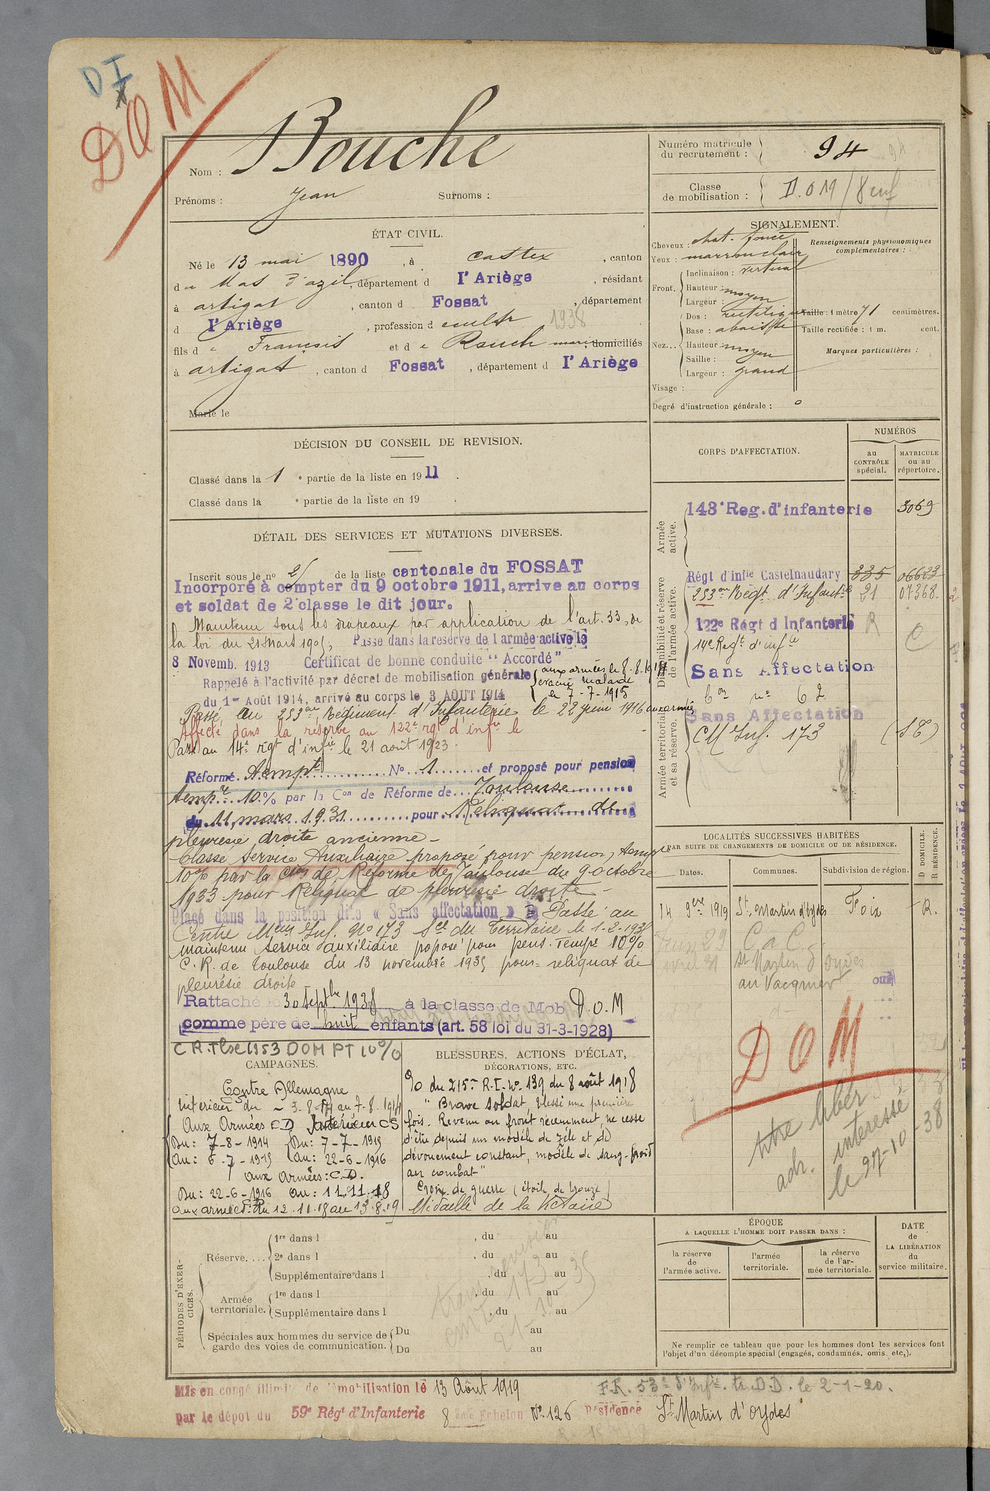 DI
DOM
Nom : Bouche
Prénoms : Jean Surnoms :
ÉTAT CIVIL.
Né le 13 mai 1890, à Castex, canton
du Mas d'azil, département d l'Ariège, résidant
à artigat, canton d Fossat, département
d l'Ariège, profession d cultr 1938
fils de François et de Rouch domiciliés
à artigat, canton d Fossat, département d l'Ariège
Marié le
DÉCISION DU CONSEIL DE REVISION.
Classé dans la 1 e partie de la liste en 1911.
Classé dans la e partie de la liste en 19 .
DÉTAIL DES SERVICES ET MUTATIONS DIVERSES.
Inscrit sous le no 21 de la liste cantonale du FOSSAT
Incorporé à compter du 9 octobre 1911, arrive au corps
et soldat de 2e classe le dit jour.
Maintenu sous les drapeaux par application de l'art. 33, de
la loi du 21 Mars 1905, Passe dans la réserve de l'armée active le
8 Novemb. 1913 Certificat de bonne conduite "Accordé"
Rappelé à l'activité par décret de mobilisation générale
du 1er Août 1914, arrivé au corps le 3 AOUT 1914
aux armées le 8.8.1914
évacué malade
le 7-7-1915
Passé au 253me Régiment d'Infanterie le 22 juin 1916 aux armées
Affecté dans la réserve au 122e rgt d'infie le
Passé au 14e rgt d'infie le 21 août 1923.
Réformé Tempt No 1 et proposé pour pension
tempre 10% par la Con de Réforme de Toulouse
du 11 mars 1931 pour Reliquat de
pleurésie droite ancienne -
Classé Service Auxiliaire proposé pour pension temp
10% par la Con de Réforme de Toulouse du 9 octobre
1933 pour Reliquat de pleurésie droite -
Placé dans la position dite « Sans affectation » Passé au
Centre Mqur Inf. No 173 Son du Territoire le 1-2-193
maintenu service auxiliaire proposé pour pens. Tempe 10%
C. R. de Toulouse du 13 novembre 1935 pour reliquat de
pleurésie droite
Rattaché le 30 Septbre 1938 à la classe de Mob D.O.M
comme père de huit enfants (art. 58 loi du 31-3-1928)
C R. Tlse 1953 DOM PT 10%
CAMPAGNES.
Contre Allemagne
Intérieur du 3-8-14 au 7-8-1914
Aux Armées CD Intérieur CS
Du: 7-8-1914 Du: 7-7-1915
Au: 6-7-1915 Au: 22-6-1916
aux Armées: C.D.
Du: 22-6-1916 au: 11.11.18
aux armées: Du 12.11.18 au 13.8.19
BLESSURES, ACTIONS D'ÉCLAT,
DÉCORATIONS, ETC.
O/o du 215e R.I. No 139 du 8 août 1918
"Brave soldat blessé une première
fois. Revenu au front récemment, ne cesse
d'être depuis un modèle de zèle et de
dévouement constant, modèle de sang-froid
au combat"
Croix de guerre (étoile de bronze)
Médaille de la Victoire
PÉRIODES D'EXERCICES.
Réserve.... 1re dans l , du au
2e dans l , du au
Supplémentaire dans l , du au
Armée territoriale. 1re dans l , du au
Supplémentaire dans l , du au
Spéciales aux hommes du service de Du au
garde des voies de communication. Du au
Mis en congé illimité de démobilisation le 13 Août 1919
par le dépôt du 59e Régt d'Infanterie 8 ème Echelon No 126 Résidence St Martin d'oydes
F.R. 53e d'Infie. le 2-1-20.
Numéro matricule
du recrutement : 94
Classe
de mobilisation : D.O.M / 8 enf
SIGNALEMENT.
Cheveux : chat. foncé
Yeux : marron clair
Front. Inclinaison : vertical
Hauteur : moyen
Largeur : moyen
Nez... Dos : rectiligne
Base : abaissée
Hauteur : moyen
Saillie : moyen
Largeur : grand
Visage :
Renseignements physionomiques
complémentaires :
Taille : 1 mètre 71 centimètres.
Taille rectifiée : 1 m. cent.
Marques particulières :
Degré d'instruction générale : 0
CORPS D'AFFECTATION.
NUMÉROS
AU CONTRÔLE spécial.
MATRICULE OU AU répertoire.
Armée active.
143e Reg. d'infanterie 3069
Disponibilité et réserve de l'armée active.
Régt d'infie Castelnaudary 335 06623
253me Régt d'Infantie 21 07368
122e Régt d'Infanterie R C
14e Regt d'infie
Sans Affectation
Armée territoriale et sa réserve.
Sans Affectation
CM Inf. 173
LOCALITÉS SUCCESSIVES HABITÉES
PAR SUITE DE CHANGEMENTS DE DOMICILE OU DE RÉSIDENCE.
Dates. Communes. Subdivision de région. D DOMICILE. R RÉSIDENCE.
14 9bre 1919 St Martin d'oydes Foix R.
St Martin d'oydes
DOM
titre libér
adr. intéressé
le 27-10-38
ÉPOQUE
A LAQUELLE L'HOMME DOIT PASSER DANS :
la réserve de l'armée active.
l'armée territoriale.
la réserve de l'armée territoriale.
DATE DE LA LIBÉRATION du service militaire.
Ne remplir ce tableau que pour les hommes dont les services font
l'objet d'un décompte spécial (engagés, condamnés, omis, etc.).